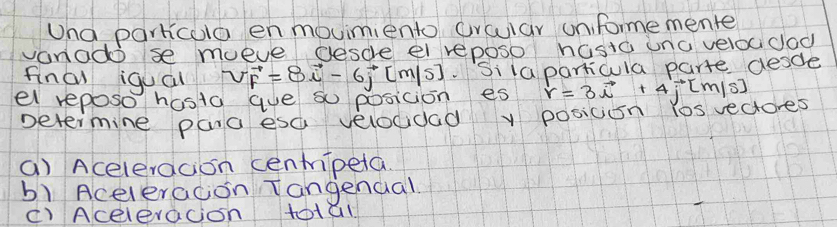 Una partícula en movimiento circular uniformemente
variado se mueve desde el reposo hasta una velocidad
final igual Vf = 8i - 6j [m/s]. Si la partícula parte desde
el reposo hasta que su posición es r = 3i + 4j [m/s]
Determine para esa velocidad y posición los vectores
a) Aceleración centrípeta.
b) Aceleración Tangencial.
c) Aceleración total